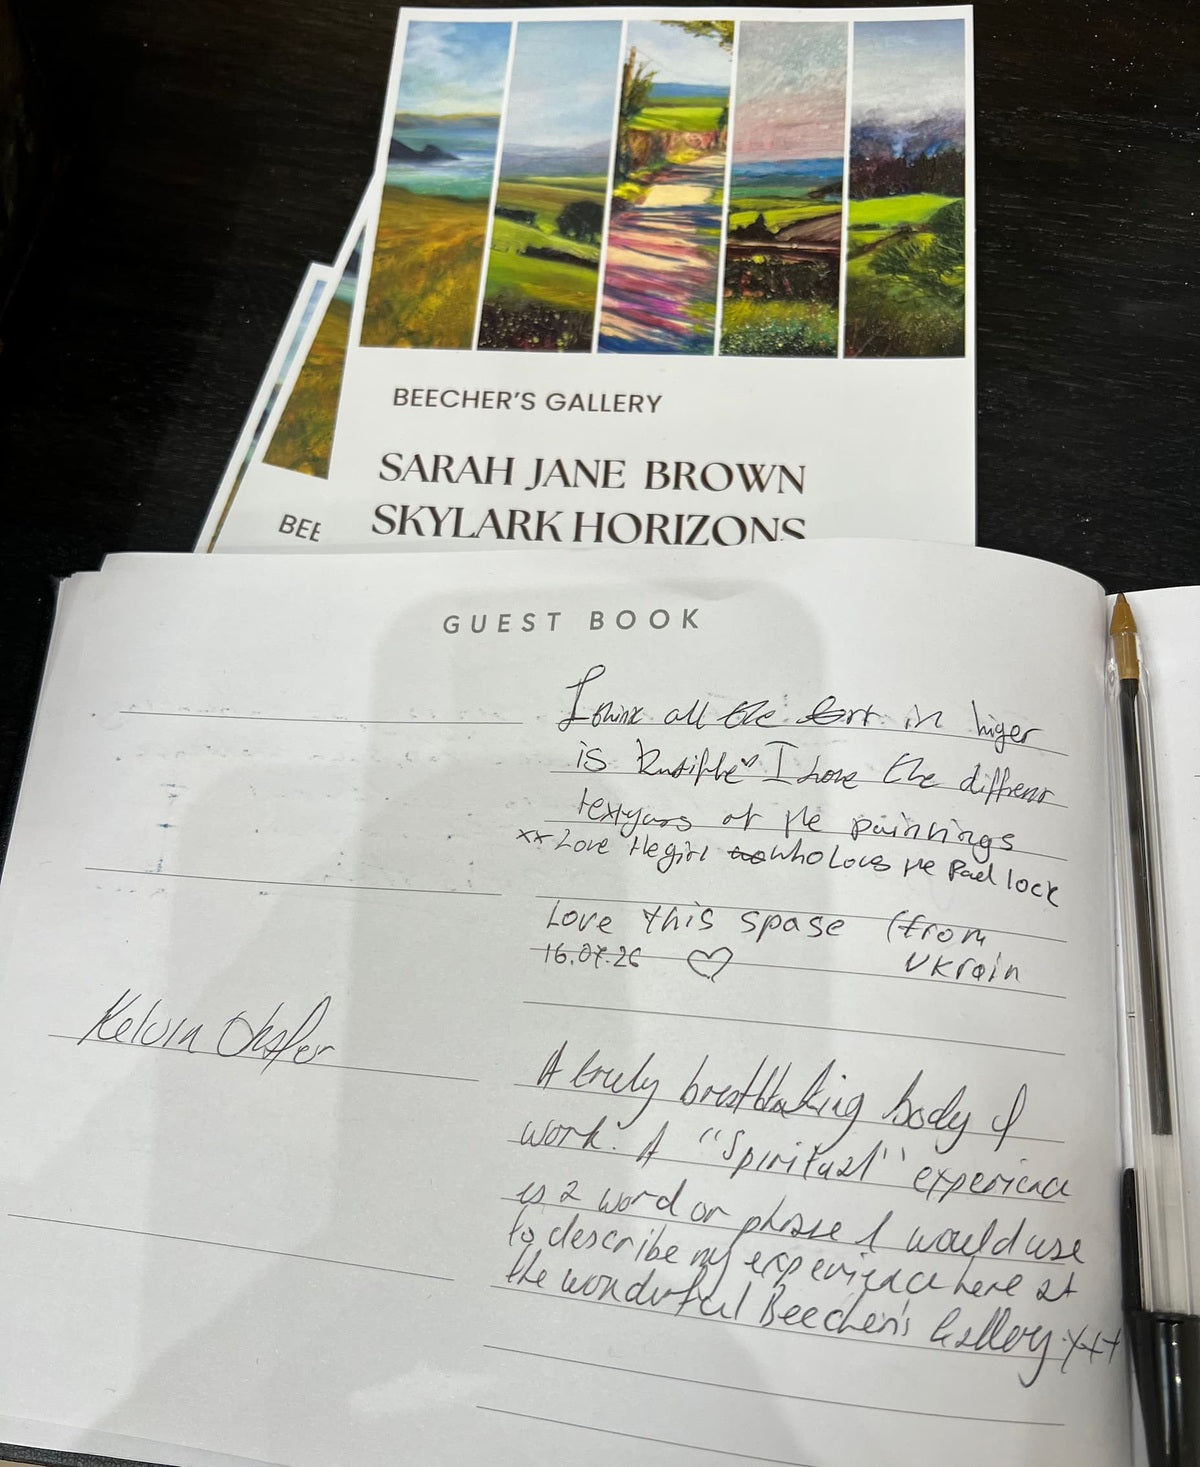 BEECHER'S GALLERY
SARAH JANE BROWN
SKYLARK HORIZONS
BEE
GUEST BOOK
I think all the art in higer
is I Love the diffrent
textyurs of the paintings
xx Love the girl who Loves the Pad lock
Love this spase (from
Ukrain
16.07.26
Kelvin Okafor
A truly breathtaking body of
work. A "Spiritual" experience
is a word or phrase I would use
to describe my experience here at
the wonderful Beecher's Gallery xxx